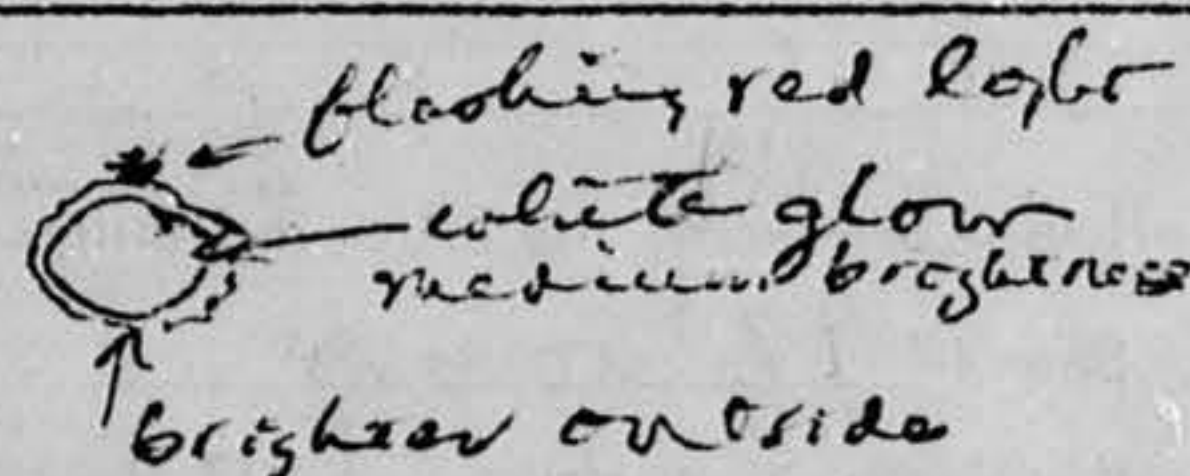 flashing red light
white glow
medium brightness
brighter outside